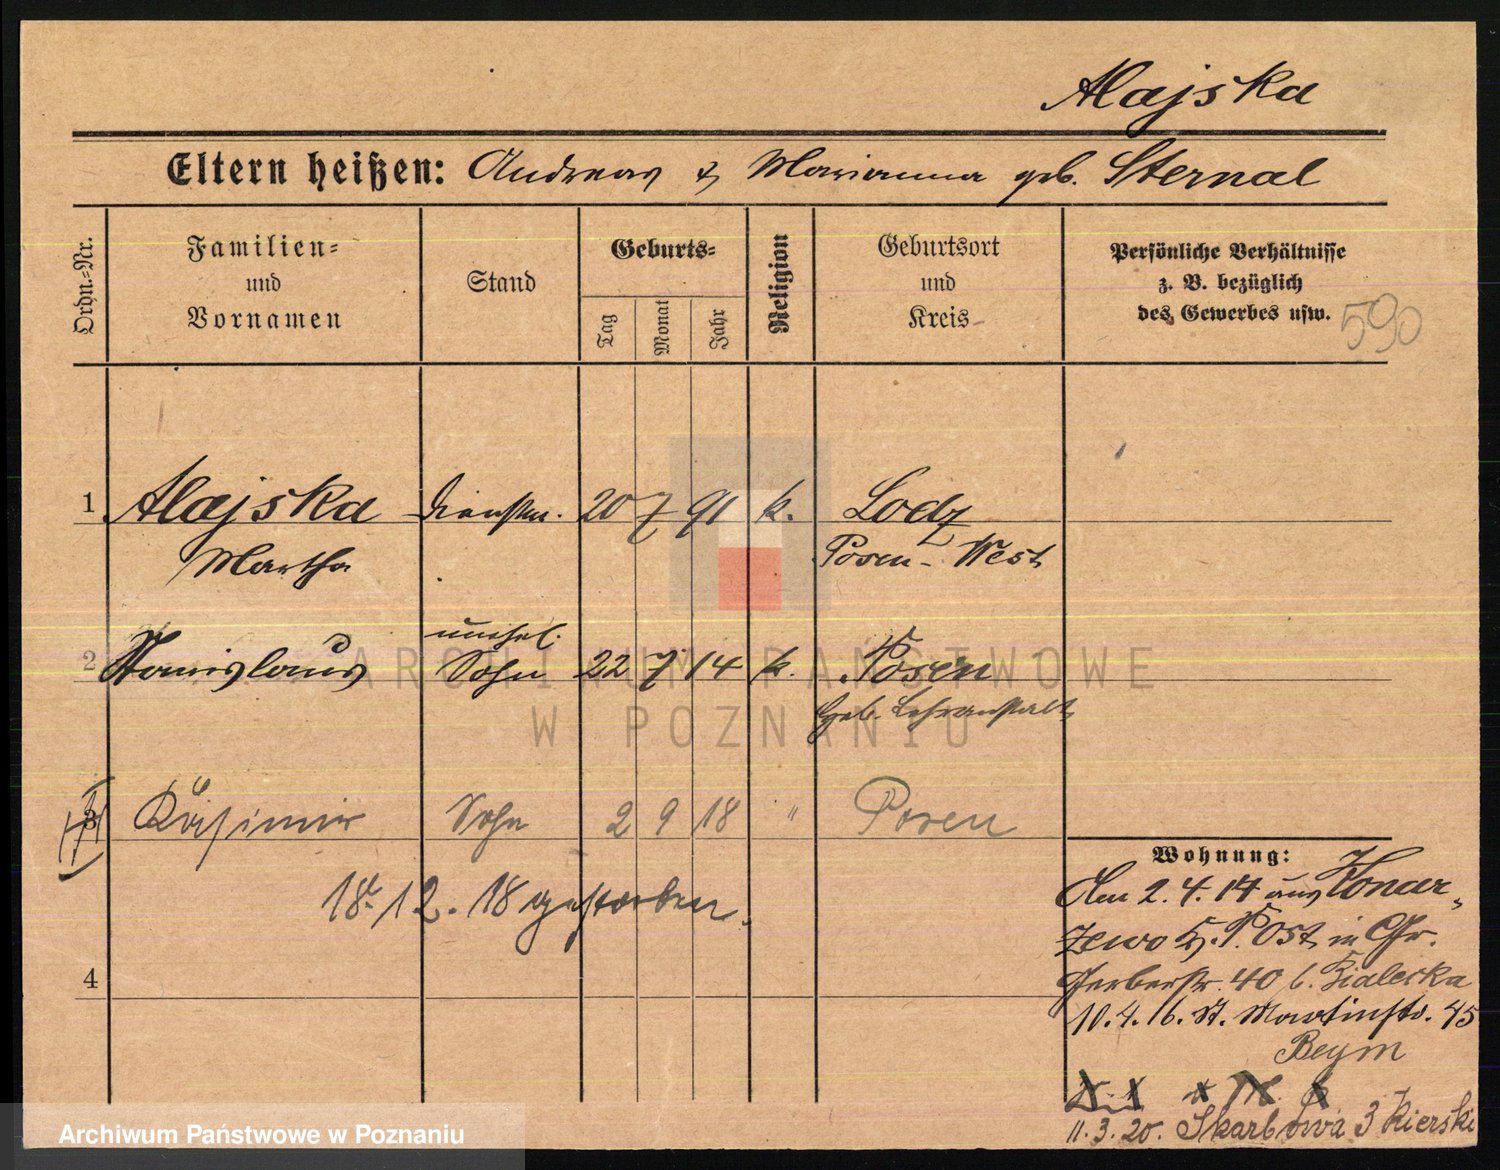 Alajska
Eltern heißen: Andreas & Marianna geb. Sternal
Ordn.-Nr.
Familien-
und
Vornamen
Stand
Geburts-
Tag
Monat
Jahr
Religion
Geburtsort
und
Kreis
Persönliche Verhältnisse
z. B. bezüglich
des Gewerbes usw.
590
1 Alajska Dienstm. 20 7 91 k. Lodz
Martha Posen-West
unehel.
2 Stanislaus Sohn 22 7 14 k. Posen
Geb. Lehranstalt
3 Kasimir Sohn 2 9 18 " Posen
18. 12. 18 gestorben.
4
Wohnung:
Am 2. 4. 14 aus Konar-
zewo K. P. Ost in Gr.
Gerberstr. 40 b. Bialecka
10. 4. 16. St. Martinstr. 45
Beym
11. 3. 20. Skarbowa 3 Kierski
ARCHIWUM PAŃSTWOWE
W POZNANIU
Archiwum Państwowe w Poznaniu